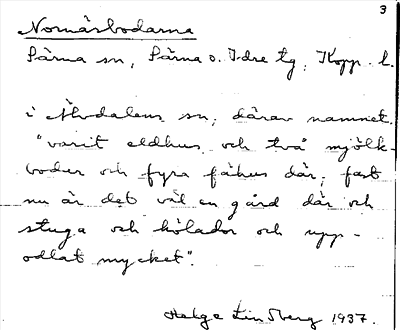 3
Nornäsbodarna
Särna sn, Särna o. Idre tg, Kopp. l.
i Älvdalens sn, därav namnet.
"varit eldhus och två mjölk-
bodar och fyra fähus där; fast
nu är det väl en gård där och
stuga och hölador och upp-
odlat mycket".
Helge Lindberg 1937.